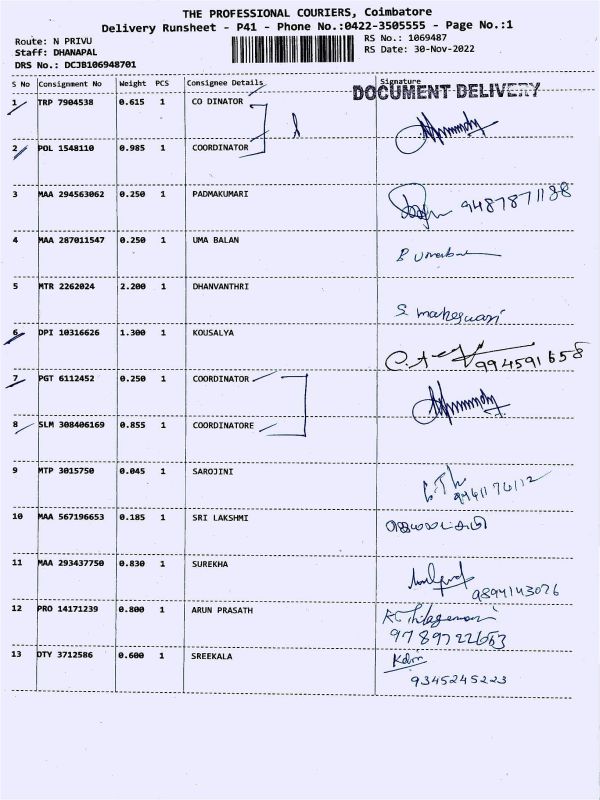 THE PROFESSIONAL COURIERS, Coimbatore
Delivery Runsheet - P41 - Phone No.:0422-3505555 - Page No.:1
Route: N PRIVU
RS No.: 1069487
Staff: DHANAPAL
RS Date: 30-Nov-2022
DRS No.: DCJB106948701
S No Consignment No Weight PCS Consignee Details Signature
DOCUMENT DELIVERY
1 TRP 7904538 0.615 1 CO DINATOR
2 POL 1548110 0.985 1 COORDINATOR
3 MAA 294563062 0.250 1 PADMAKUMARI 9487871138
4 MAA 287011547 0.250 1 UMA BALAN
5 MTR 2262024 2.200 1 DHANVANTHRI S. maheswari
6 DPI 10316626 1.300 1 KOUSALYA 994591658
7 PGT 6112452 0.250 1 COORDINATOR
8 SLM 308406169 0.855 1 COORDINATORE
9 MTP 3015750 0.045 1 SAROJINI
10 MAA 567196653 0.185 1 SRI LAKSHMI
11 MAA 293437750 0.830 1 SUREKHA 9894143026
12 PRO 14171239 0.800 1 ARUN PRASATH
13 DTY 3712586 0.600 1 SREEKALA
9345245223